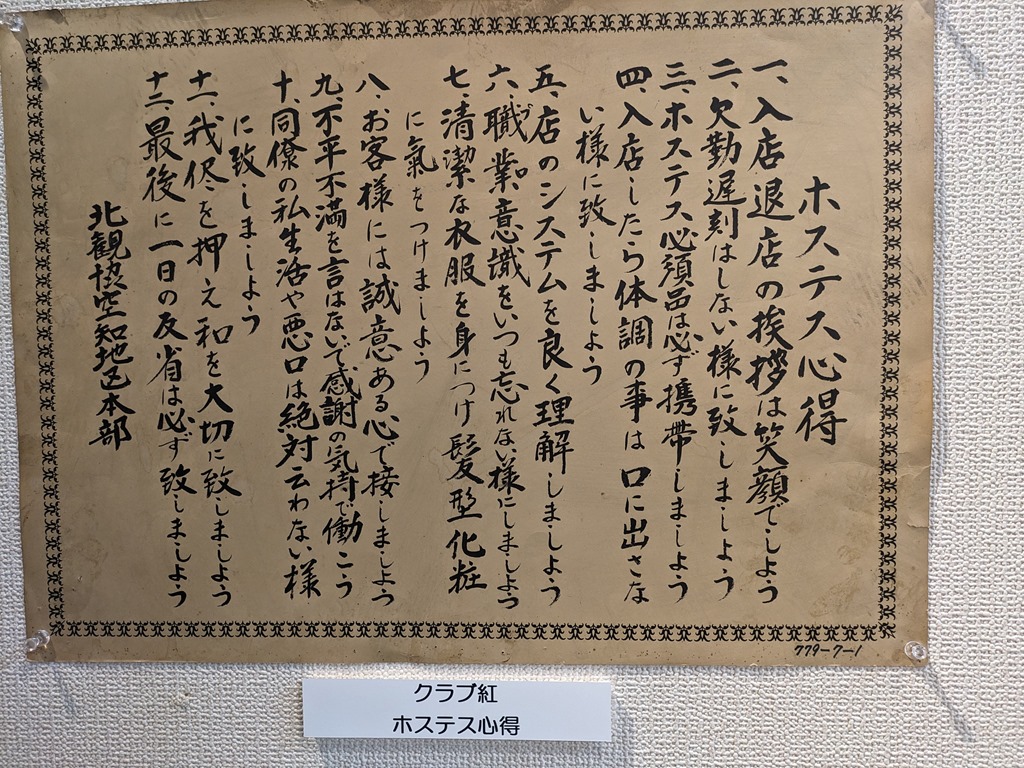 ホステス心得
一、入店退店の挨拶は笑顔でしよう
二、欠勤遅刻はしない様に致しましよう
三、ホステス必須品は必ず携帯しましよう
四、入店したら体調の事は口に出さな
い様に致しましよう
五、店のシステムを良く理解しましよう
六、職業意識をいつも忘れない様にしましよう
七、清潔な衣服を身につけ髪型化粧
に氣をつけましよう
八、お客様には誠意ある心で接しましよう
九、不平不満を言はないで感謝の気持で働こう
十、同僚の私生活や悪口は絶対云わない様
に致しましよう
十一、我侭を押え和を大切に致しましよう
十二、最後に一日の反省は必ず致しましよう
北観協空知地区本部
779-7-1
クラブ紅
ホステス心得